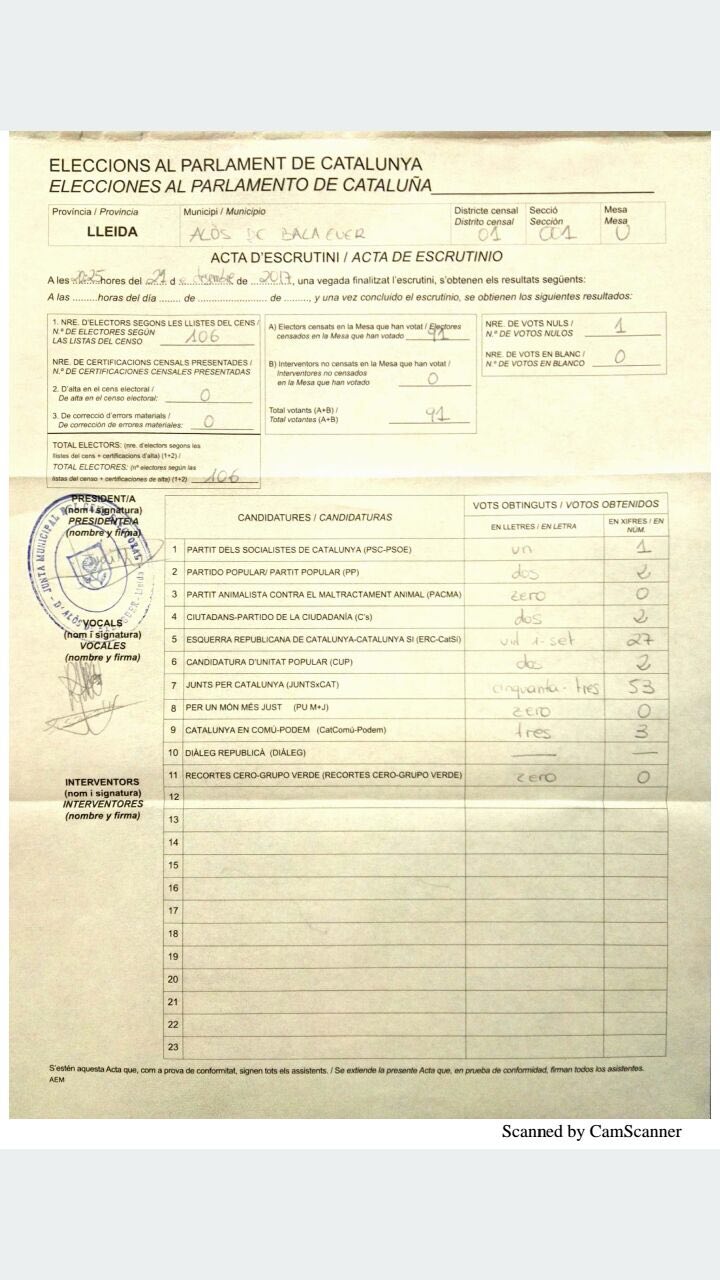 ELECCIONS AL PARLAMENT DE CATALUNYA
ELECCIONES AL PARLAMENTO DE CATALUÑA
Província / Provincia
LLEIDA
Municipi / Municipio
ALÒS DE BALAGUER
Districte censal
Distrito censal
01
Secció
Sección
001
Mesa
Mesa
U
ACTA D'ESCRUTINI / ACTA DE ESCRUTINIO
A les hores del 21 de de 2017, una vegada finalitzat l'escrutini, s'obtenen els resultats següents:
A las .........horas del día ....... de ........................ de ........, y una vez concluido el escrutinio, se obtienen los siguientes resultados:
1. NRE. D'ELECTORS SEGONS LES LLISTES DEL CENS /
N.º DE ELECTORES SEGÚN
LAS LISTAS DEL CENSO 106
NRE. DE CERTIFICACIONS CENSALS PRESENTADES /
N.º DE CERTIFICACIONES CENSALES PRESENTADAS
2. D'alta en el cens electoral /
De alta en el censo electoral: 0
3. De correcció d'errors materials /
De corrección de errores materiales: 0
TOTAL ELECTORS: (nre. d'electors segons les
llistes del cens + certificacions d'alta) (1+2) /
TOTAL ELECTORES: (nº electores según las
listas del censo + certificaciones de alta) (1+2) 106
A) Electors censats en la Mesa que han votat / Electores
censados en la Mesa que han votado 91
B) Interventors no censats en la Mesa que han votat /
Interventores no censados
en la Mesa que han votado 0
Total votants (A+B) /
Total votantes (A+B) 91
NRE. DE VOTS NULS /
N.º DE VOTOS NULOS 1
NRE. DE VOTS EN BLANC /
N.º DE VOTOS EN BLANCO 0
PRESIDENT/A
(nom i signatura)
PRESIDENTE/A
(nombre y firma)
JUNTA MUNICIPAL DEL CENS
VOCALS
(nom i signatura)
VOCALES
(nombre y firma)
INTERVENTORS
(nom i signatura)
INTERVENTORES
(nombre y firma)
CANDIDATURES / CANDIDATURAS
VOTS OBTINGUTS / VOTOS OBTENIDOS
EN LLETRES / EN LETRA
EN XIFRES / EN
NÚM.
1 PARTIT DELS SOCIALISTES DE CATALUNYA (PSC-PSOE) un 1
2 PARTIDO POPULAR/ PARTIT POPULAR (PP) dos 2
3 PARTIT ANIMALISTA CONTRA EL MALTRACTAMENT ANIMAL (PACMA) zero 0
4 CIUTADANS-PARTIDO DE LA CIUDADANÍA (C's) dos 2
5 ESQUERRA REPUBLICANA DE CATALUNYA-CATALUNYA SÍ (ERC-CatSí) vint-i-set 27
6 CANDIDATURA D'UNITAT POPULAR (CUP) dos 2
7 JUNTS PER CATALUNYA (JUNTSxCAT) cinquanta-tres 53
8 PER UN MÓN MÉS JUST (PU M+J) zero 0
9 CATALUNYA EN COMÚ-PODEM (CatComú-Podem) tres 3
10 DIÀLEG REPUBLICÀ (DIÀLEG) — —
11 RECORTES CERO-GRUPO VERDE (RECORTES CERO-GRUPO VERDE) zero 0
12
13
14
15
16
17
18
19
20
21
22
23
S'estén aquesta Acta que, com a prova de conformitat, signen tots els assistents. / Se extiende la presente Acta que, en prueba de conformidad, firman todos los asistentes.
AEM
Scanned by CamScanner